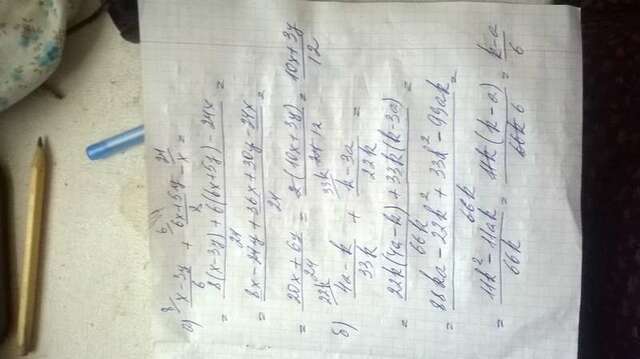 а) 8/ x-3y / 6 + 6/ 6x+5y / 8 - 24/ x =
= 8(x-3y)+6(6x+5y)-24x / 24 =
= 8x-24y+36x+30y-24x / 24 =
= 20x+6y / 24 = 2(10x+3y) / 24 12 = 10x+3y / 12
б) 22k/ 4a-k / 33k + 33k/ k-3a / 22k =
= 22k(4a-k)+33k(k-3a) / 66k =
= 88ka-22k²+33k²-99ak / 66k =
= 11k²-11ak / 66k = 11k(k-a) / 66k 6 = k-a / 6